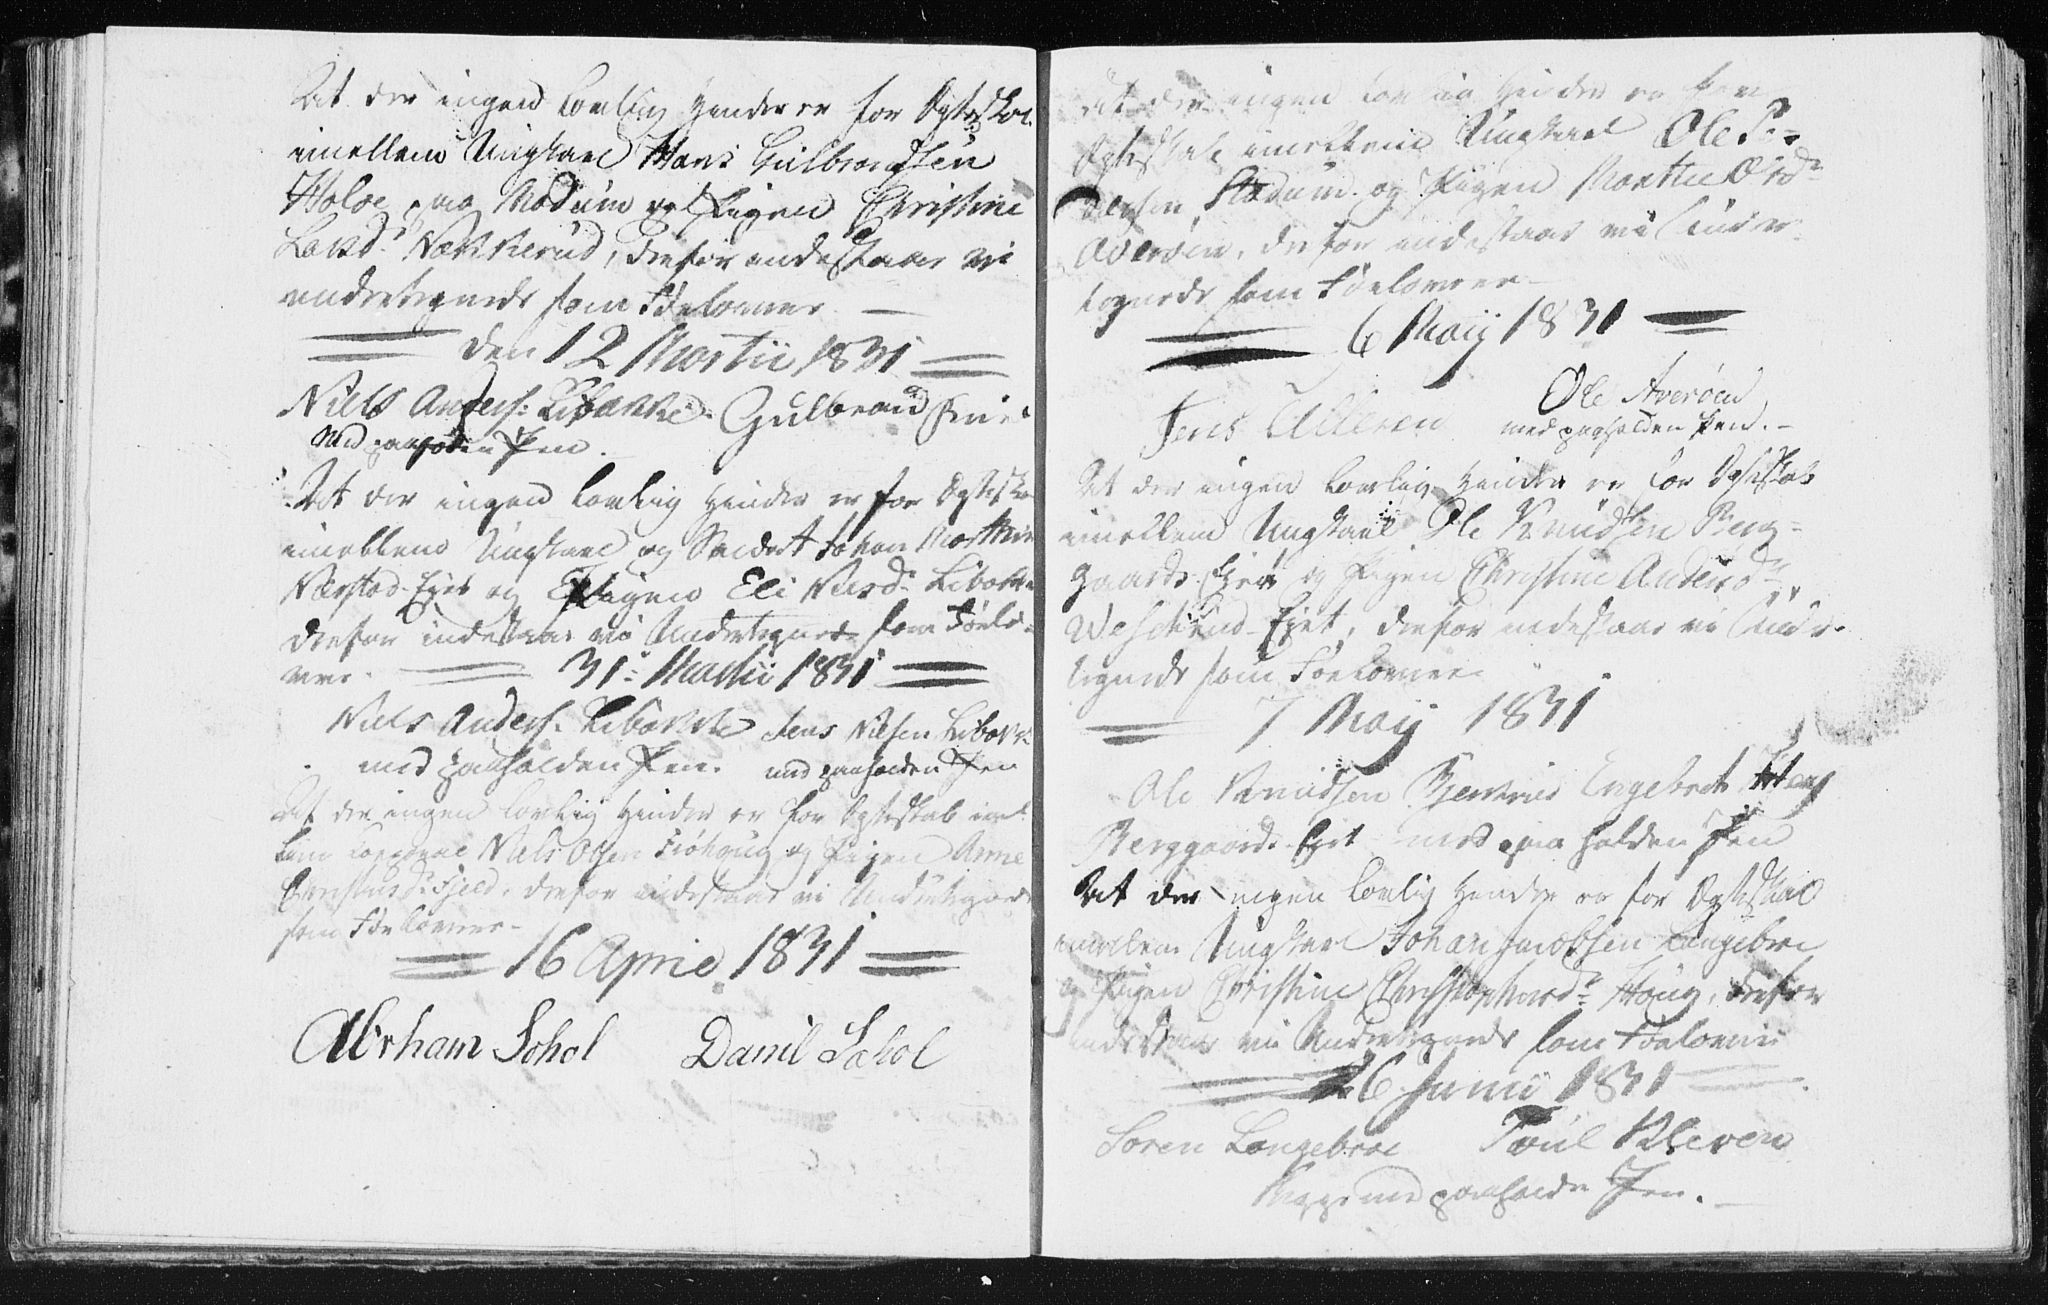 At der ingen lovlig Hinder er for Ægteskab
imellem Ungkarl Hans Gulbrandsen
Holoe paa Modum og Pigen Christine
Larsd: Nøkkerud, derfor indestaar vi
undertegnede som Forlovere
den 12 Martii 1831
Niels Anders: Libakke Gulbrand
med paaholden Pen.
At der ingen lovlig Hinder er for Ægteska
imellem Ungkarl og Soldat Johan
Eiet og Pigen Eli Nilsd: Libakke
derfor indestaar vi Undertegnede som Forlo-
vere. 31 Martii 1831
Niels Anders: Libakke Jens Nilsen Libakke
med paaholden Pen. med paaholden Pen
At der ingen lovlig Hinder er for Ægteskab imel
lem Niels Olsen og Pigen Anne
Fjeld, derfor indestaar vi Undertegnede
som Forlovere
16 April 1831
Abrham Sohol Daniel Sohol
At der ingen lovlig Hinder er for
Ægteskab imellem Ungkarl Ole
og Pigen Marthe
Averøen, derfor indestaar vi Under-
tegnede som Forlovere
6 Maij 1831
Jens Ulleren Ole Averøen
med paaholden Pen.
At der ingen lovlig Hinder er for Ægteskab
imellem Ungkarl Ole Knudsen Berg-
gaards Eiet og Pigen Christine Andersd:
Eiet, derfor indestaar vi Under-
tegnede som Forlovere
7 Maij 1831
Ole Knudsen Engebret Haug
Berggaards Eiet med paaholden Pen
At der ingen lovlig Hinder er for Ægteskab
imellem Ungkarl Johan Jacobsen Langebroe
og Pigen Christine Christophersd: Haug, derfor
indestaar vi Undertegnede som Forlovere
26 Junii 1831
Soren Langebroe Poul Kleven
Begge med paaholden Pen.